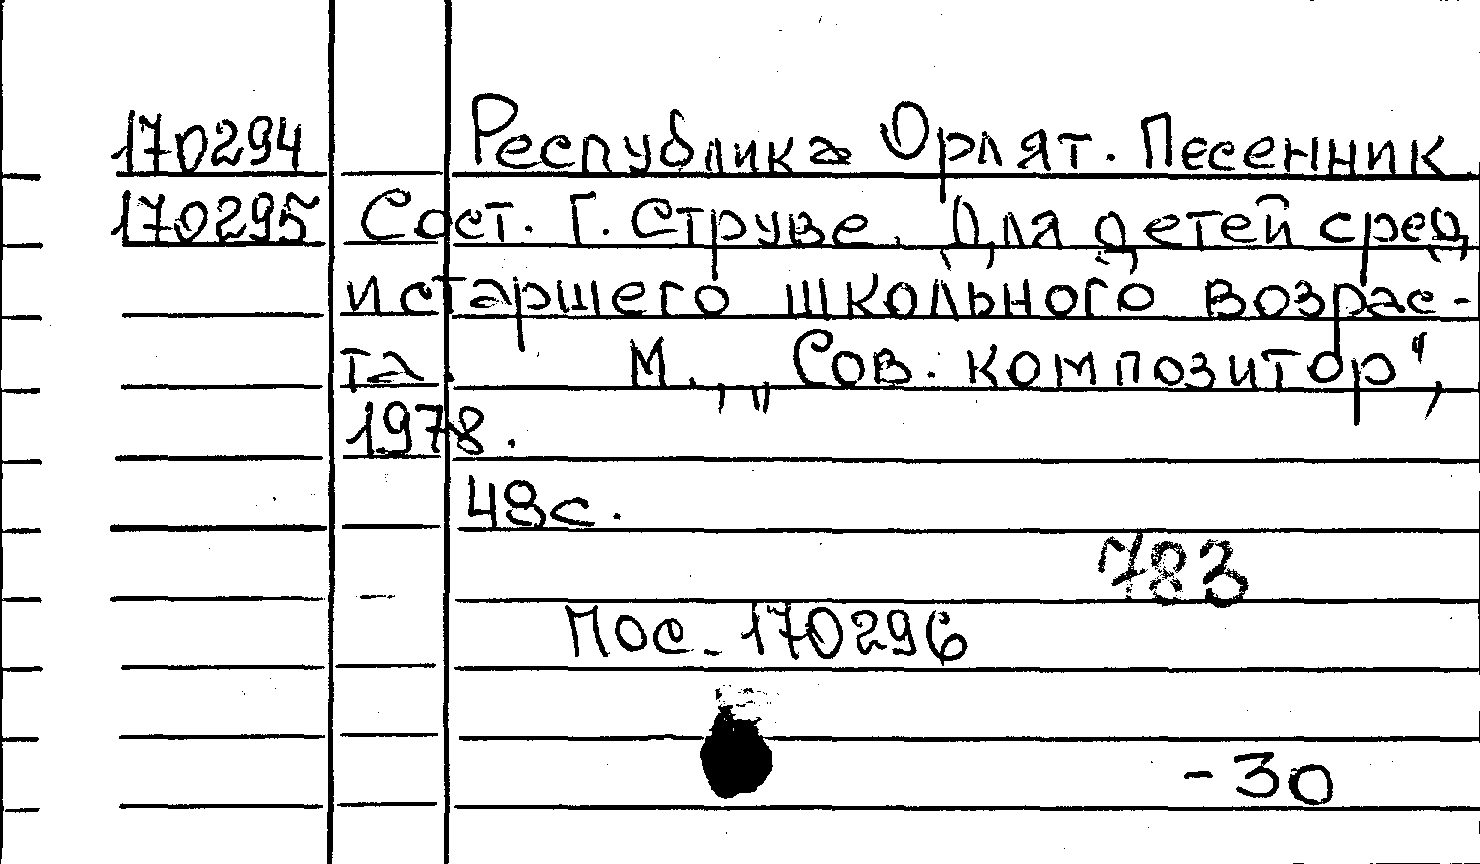 170294 Республика Орлят. Песенник.
170295 Сост. Г. Струве. Для детей сред.
и старшего школьного возрас-
та. М., „Сов. композитор",
1978.
48с.
783
Мос. 170296
-30